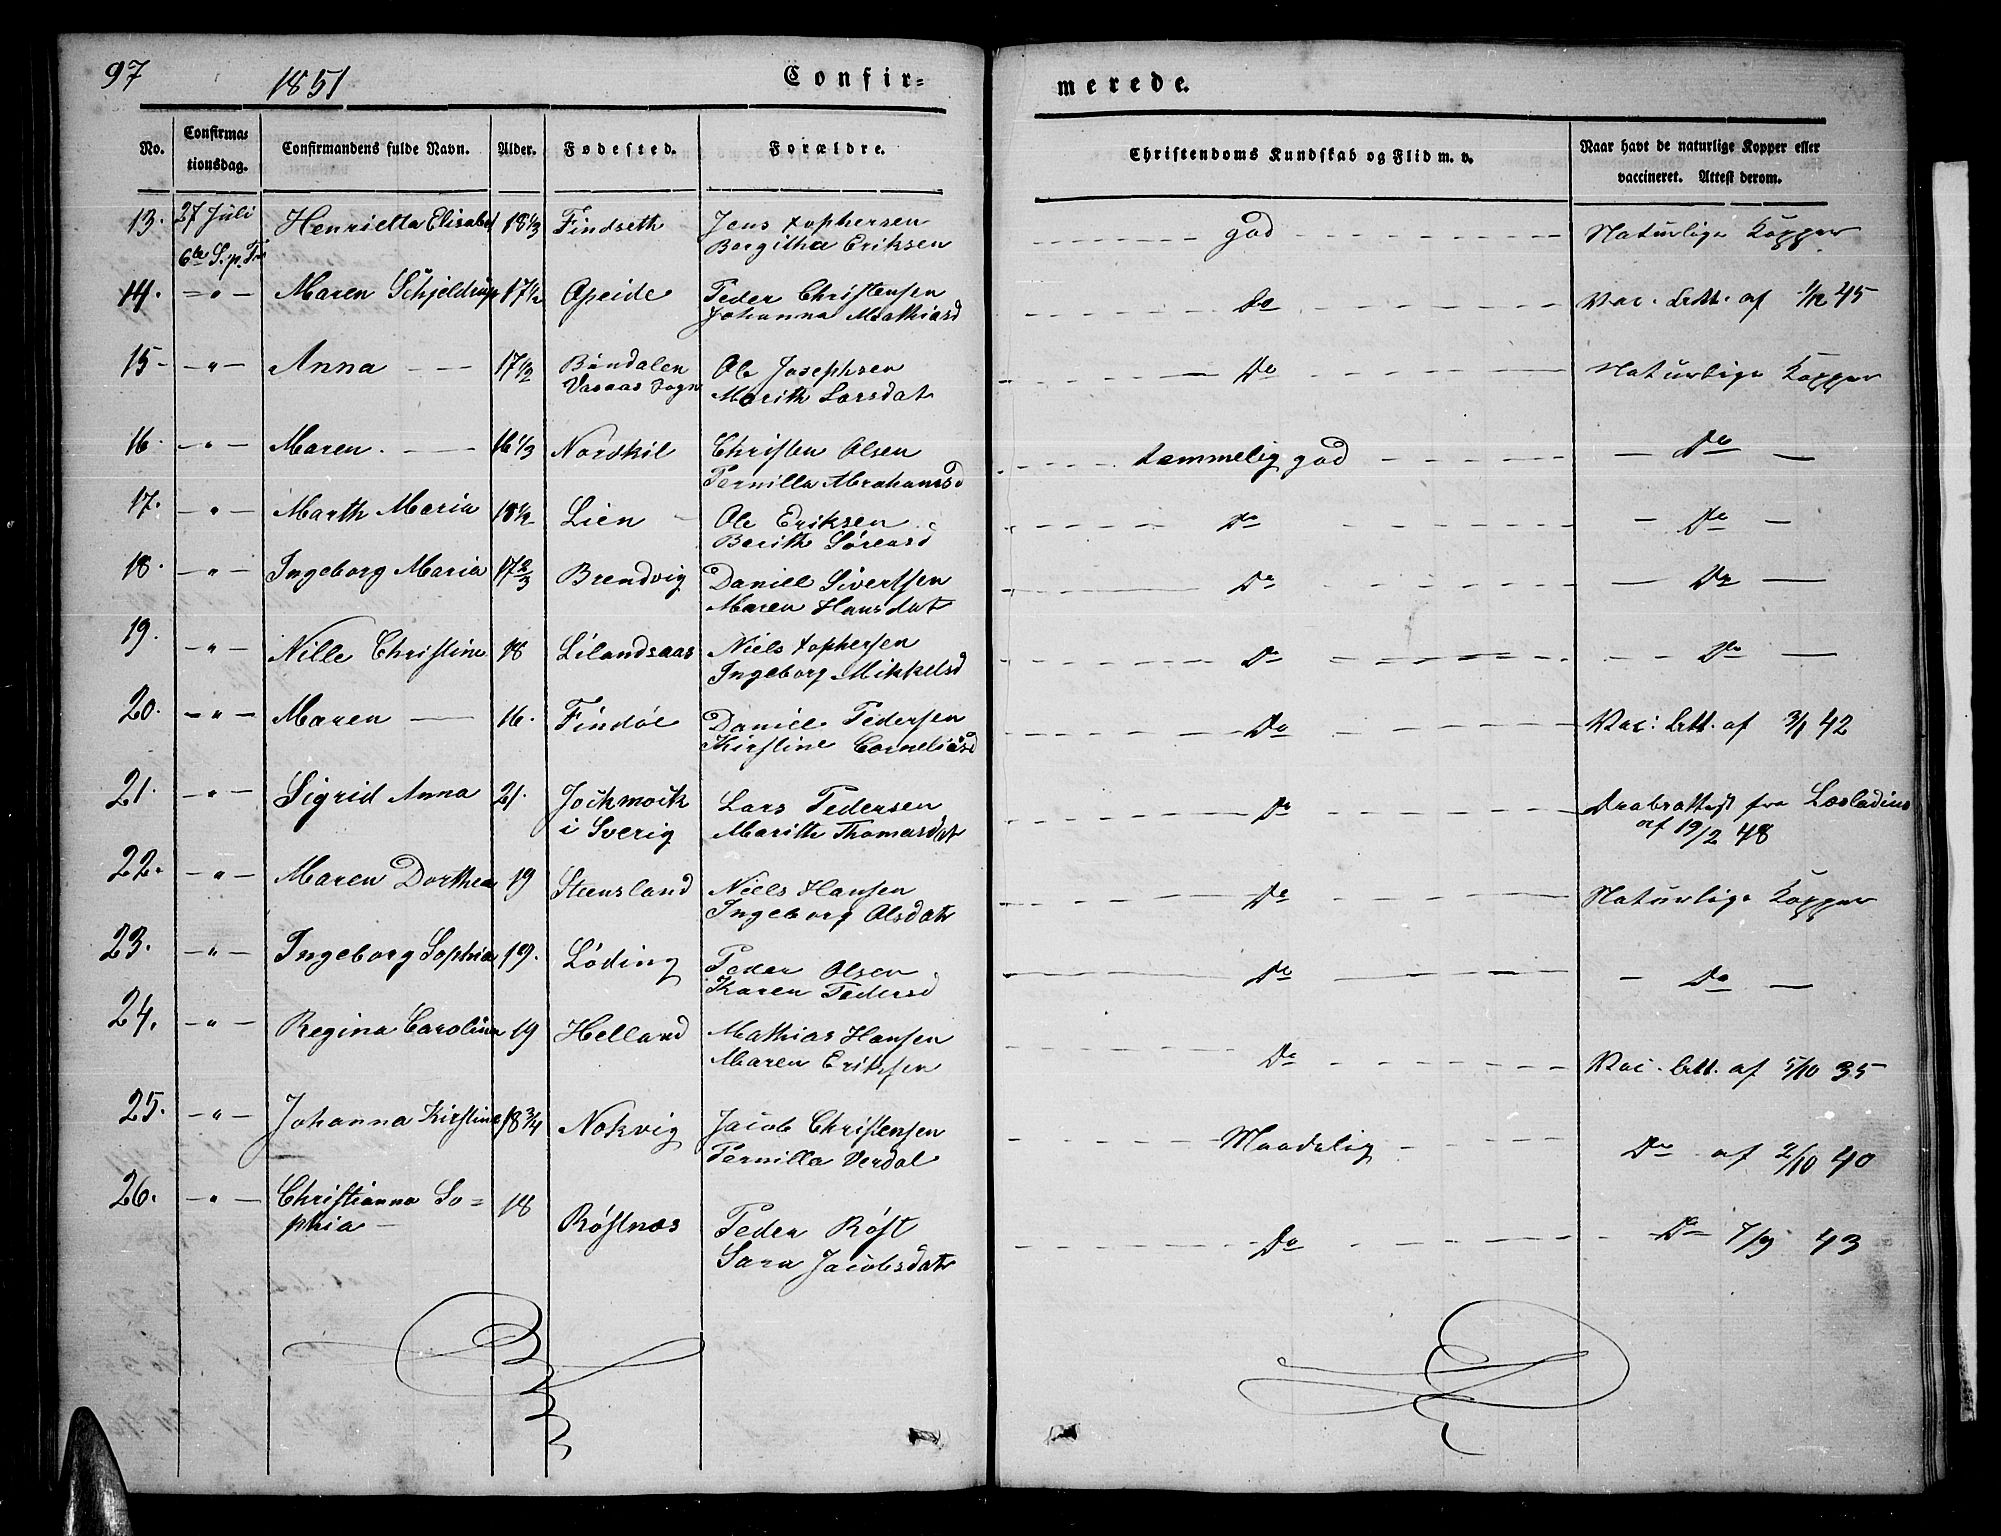 97
1851
Confir=
merede.
No.
Confirma=
tionsdag.
Confirmandens fulde Navn.
Alder.
Fødested.
Forældre.
Christendoms Kundskab og Flid m. v.
Naar havt de naturlige Kopper eller
vaccineret. Attest derom.
13. 27 Juli Henrietta Elisabet 18 1/3 Findseth Jens Xophersen god Naturlige Kopper
6te S. p. Tr. Borgitha Eriksen
14. — " — Maren Schjeldrup 17 1/2 Opeide Peder Christensen Do Vac. Att. af 1/12 45
Johanna Mathiasd
15 — " — Anna 17 1/2 Bøndalen Ole Josephsen Do Naturlige Kopper
Vasaas Sogn Marith Larsdat
16. — " — Maren. 16 1/3 Norskil Christen Olsen temmelig god Do
Pernilla Abrahamsd
17. — " — Marth Maria 18 1/2 Lien Ole Eriksen Do Do
Berith Sørensd
18. — " — Ingeborg Maria 17 2/3 Brendvig Daniel Sivertsen Do Do
Maren Hansdat
19. — " — Nille Christine 18 Lilandsaas Niels Xophersen Do Do
Ingeborg Mikkelsd
20. — " — Maren 16. Findøe Daniel Pedersen Do Vac: Att. af 3/1 42
Kirstine Corneliasd
21. — " — Sigrid Anna 21. Jockmock Lars Pedersen Do Daabsattest fra Læstadius
i Sverig Marith Thomasdat af 19/2 48
22. — " — Maren Dorthea 19 Steensland Niels Hansen Do Naturlige Kopper
Ingeborg Olsdatr
23. — " — Ingeborg Sophia 19. Løding Peder Olsen Do Do
Karen Pedersd
24. — " — Regina Carolina 19 Helland Mathias Hansen Do Vac. Att. af 5/10 35
Maren Eriksen
25. — " — Johanna Kirstine 18 3/4 Nokvig Jacob Christensen Maadelig Do af 2/10 40
Pernilla Verdal
26. — " — Christianna So= 18 Røstnæs Peder Røst Do Do 7/9 43
phia Sara Jacobsdatr